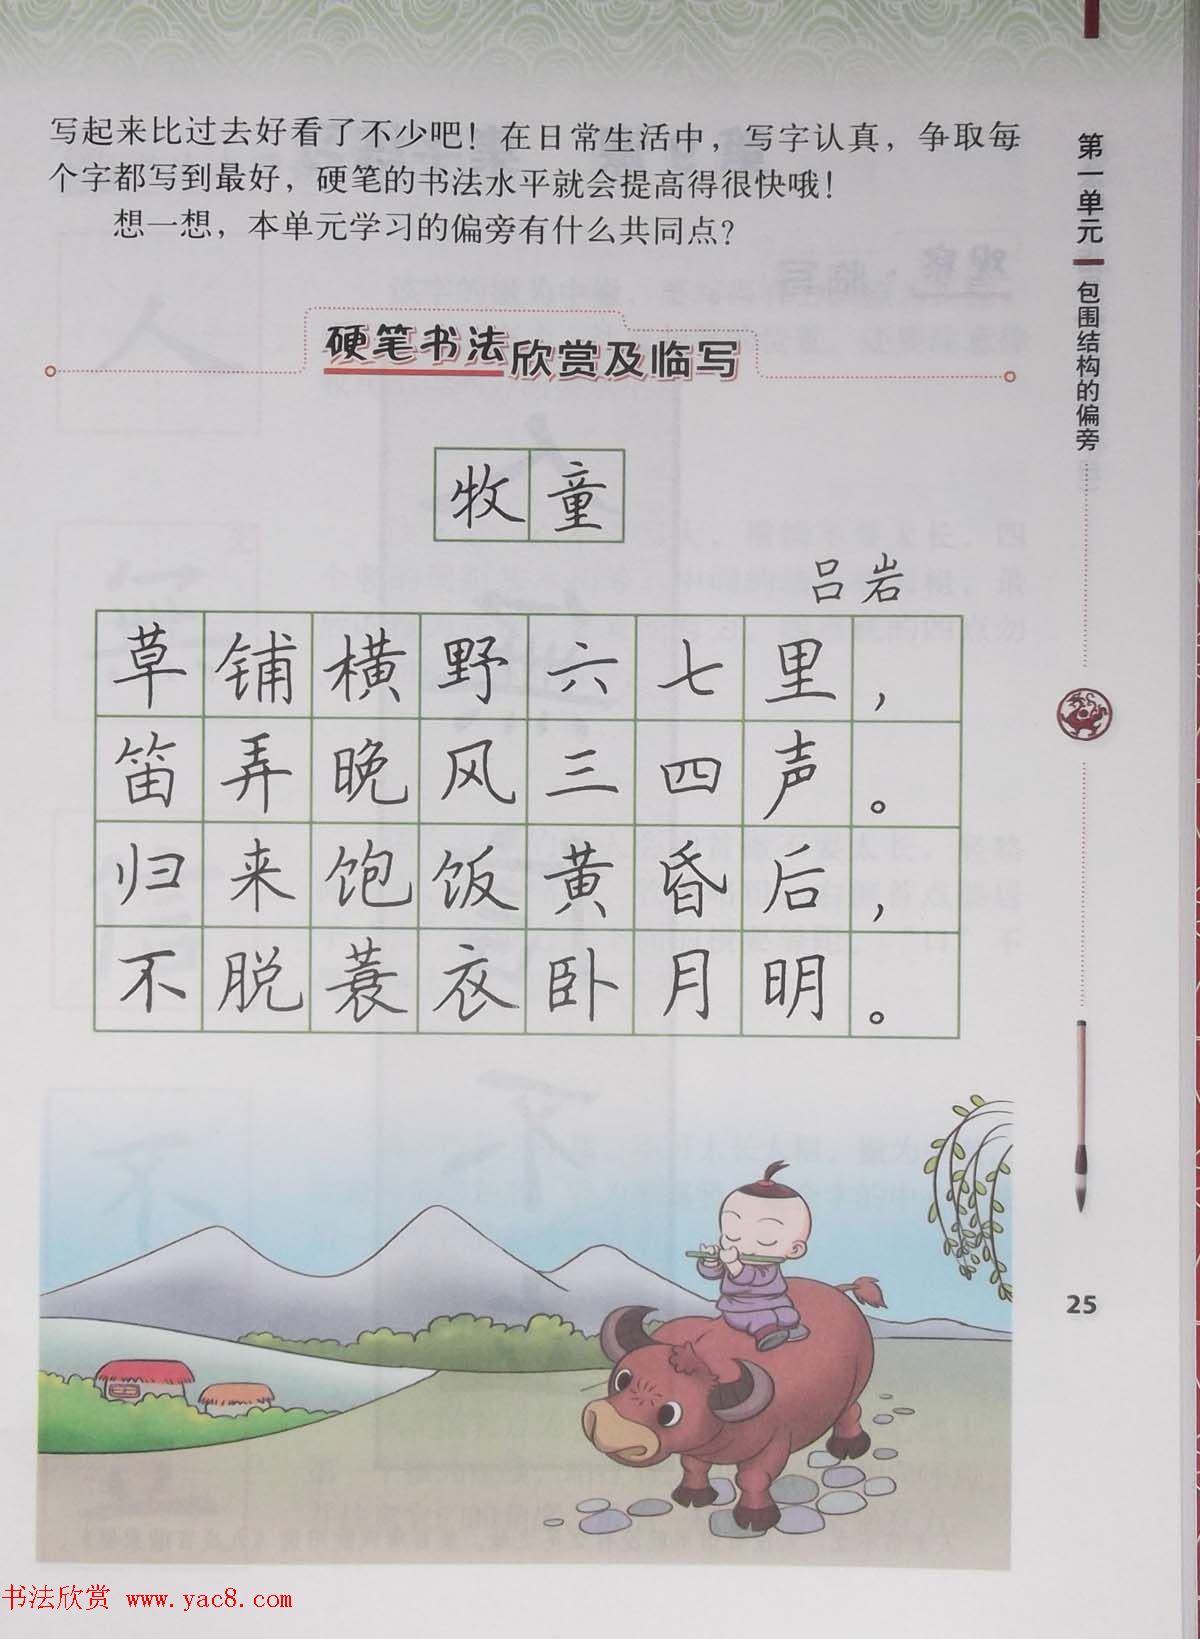 写起来比过去好看了不少吧！在日常生活中，写字认真，争取每
个字都写到最好，硬笔的书法水平就会提高得很快哦！
想一想，本单元学习的偏旁有什么共同点？
硬笔书法欣赏及临写
牧童
吕岩
草铺横野六七里，
笛弄晚风三四声。
归来饱饭黄昏后，
不脱蓑衣卧月明。
第一单元
包围结构的偏旁
25
书法欣赏 www.yac8.com